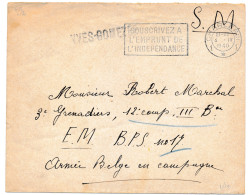 S. M
YVES-GOMEZ
SOUSCRIVEZ A
L'EMPRUNT DE
L'INDEPENDANCE
Monsieur Robert Marchal
3e Grenadiers, 12e comp. III Bn
E.M. B.P.S. no 17
Armée Belge en campagne